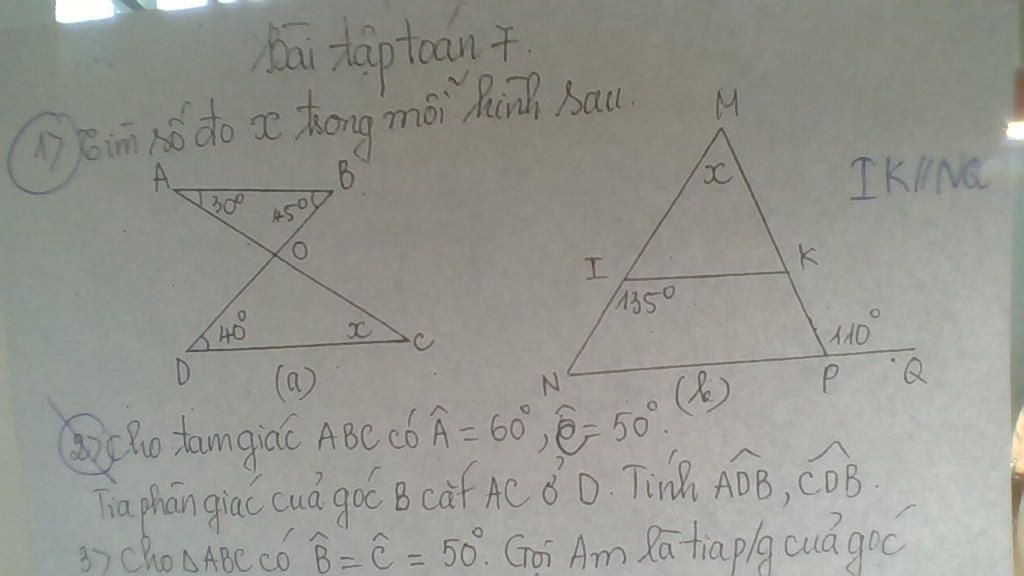 Bài tập toán 7.
1) Tìm số đo x trong mỗi hình sau.
A 30° 45° B
O
D 40° x C
(a)
M
x
IK//NQ
I K
135°
110°
N P Q
(b)
2) Cho tam giác ABC có Â = 60°, Ĉ = 50°.
Tia phân giác của góc B cắt AC ở D. Tính ADB, CDB.
3) Cho ΔABC có B̂ = Ĉ = 50°. Gọi Am là tia p/g của góc